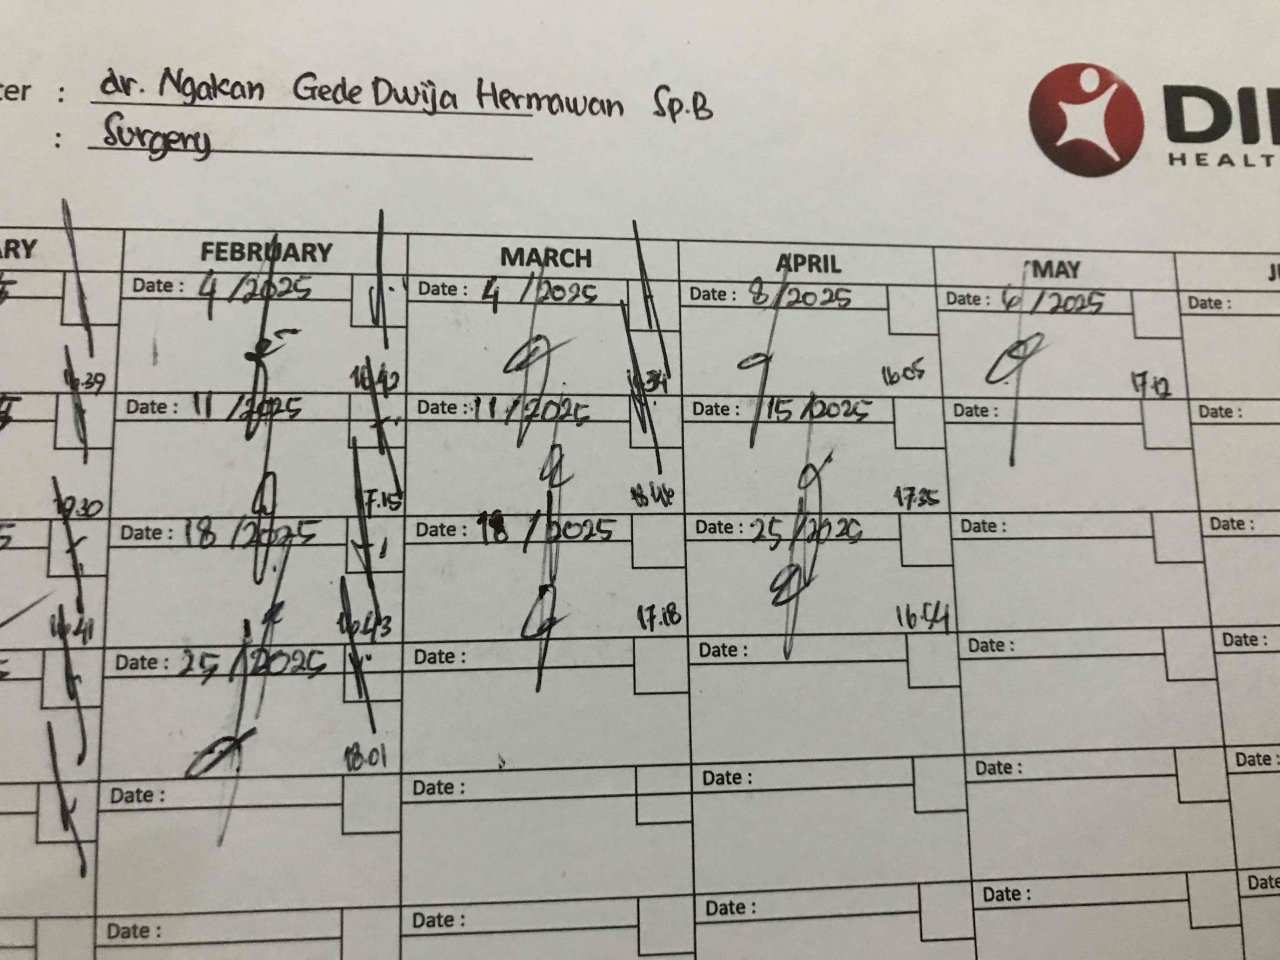 ter : dr. Ngakan Gede Dwija Hermawan Sp.B
: Surgery
DI
HEALT
ARY FEBRUARY MARCH APRIL MAY JU
Date : 4 /2025 Date : 4 /2025 Date : 8/2025 Date : 6 /2025 Date :
16.39 16.42 16.34 16.05 17.12
Date : 11 /2025 Date : 11 /2025 Date : 15/2025 Date : Date :
17.15 17.35
Date : 18 /2025 Date : 18 /2025 Date : 25/2025 Date : Date :
16.41 16.43 17.18 16.44
Date : 25 /2025 Date : Date : Date : Date :
18.01
Date : Date : Date : Date : Date :
Date : Date : Date : Date : Date